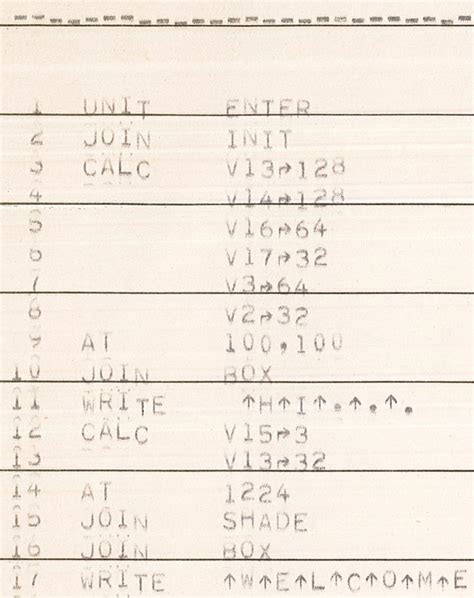 1 UNIT ENTER
2 JOIN INIT
3 CALC V13↱128
4 V14↱128
5 V16↱64
6 V17↱32
7 V3↱64
8 V2↱32
9 AT 100,100
10 JOIN BOX
11 WRITE ↑H↑I↑.↑.↑.
12 CALC V15↱3
13 V13↱32
14 AT 1224
15 JOIN SHADE
16 JOIN BOX
17 WRITE ↑W↑E↑L↑C↑O↑M↑E